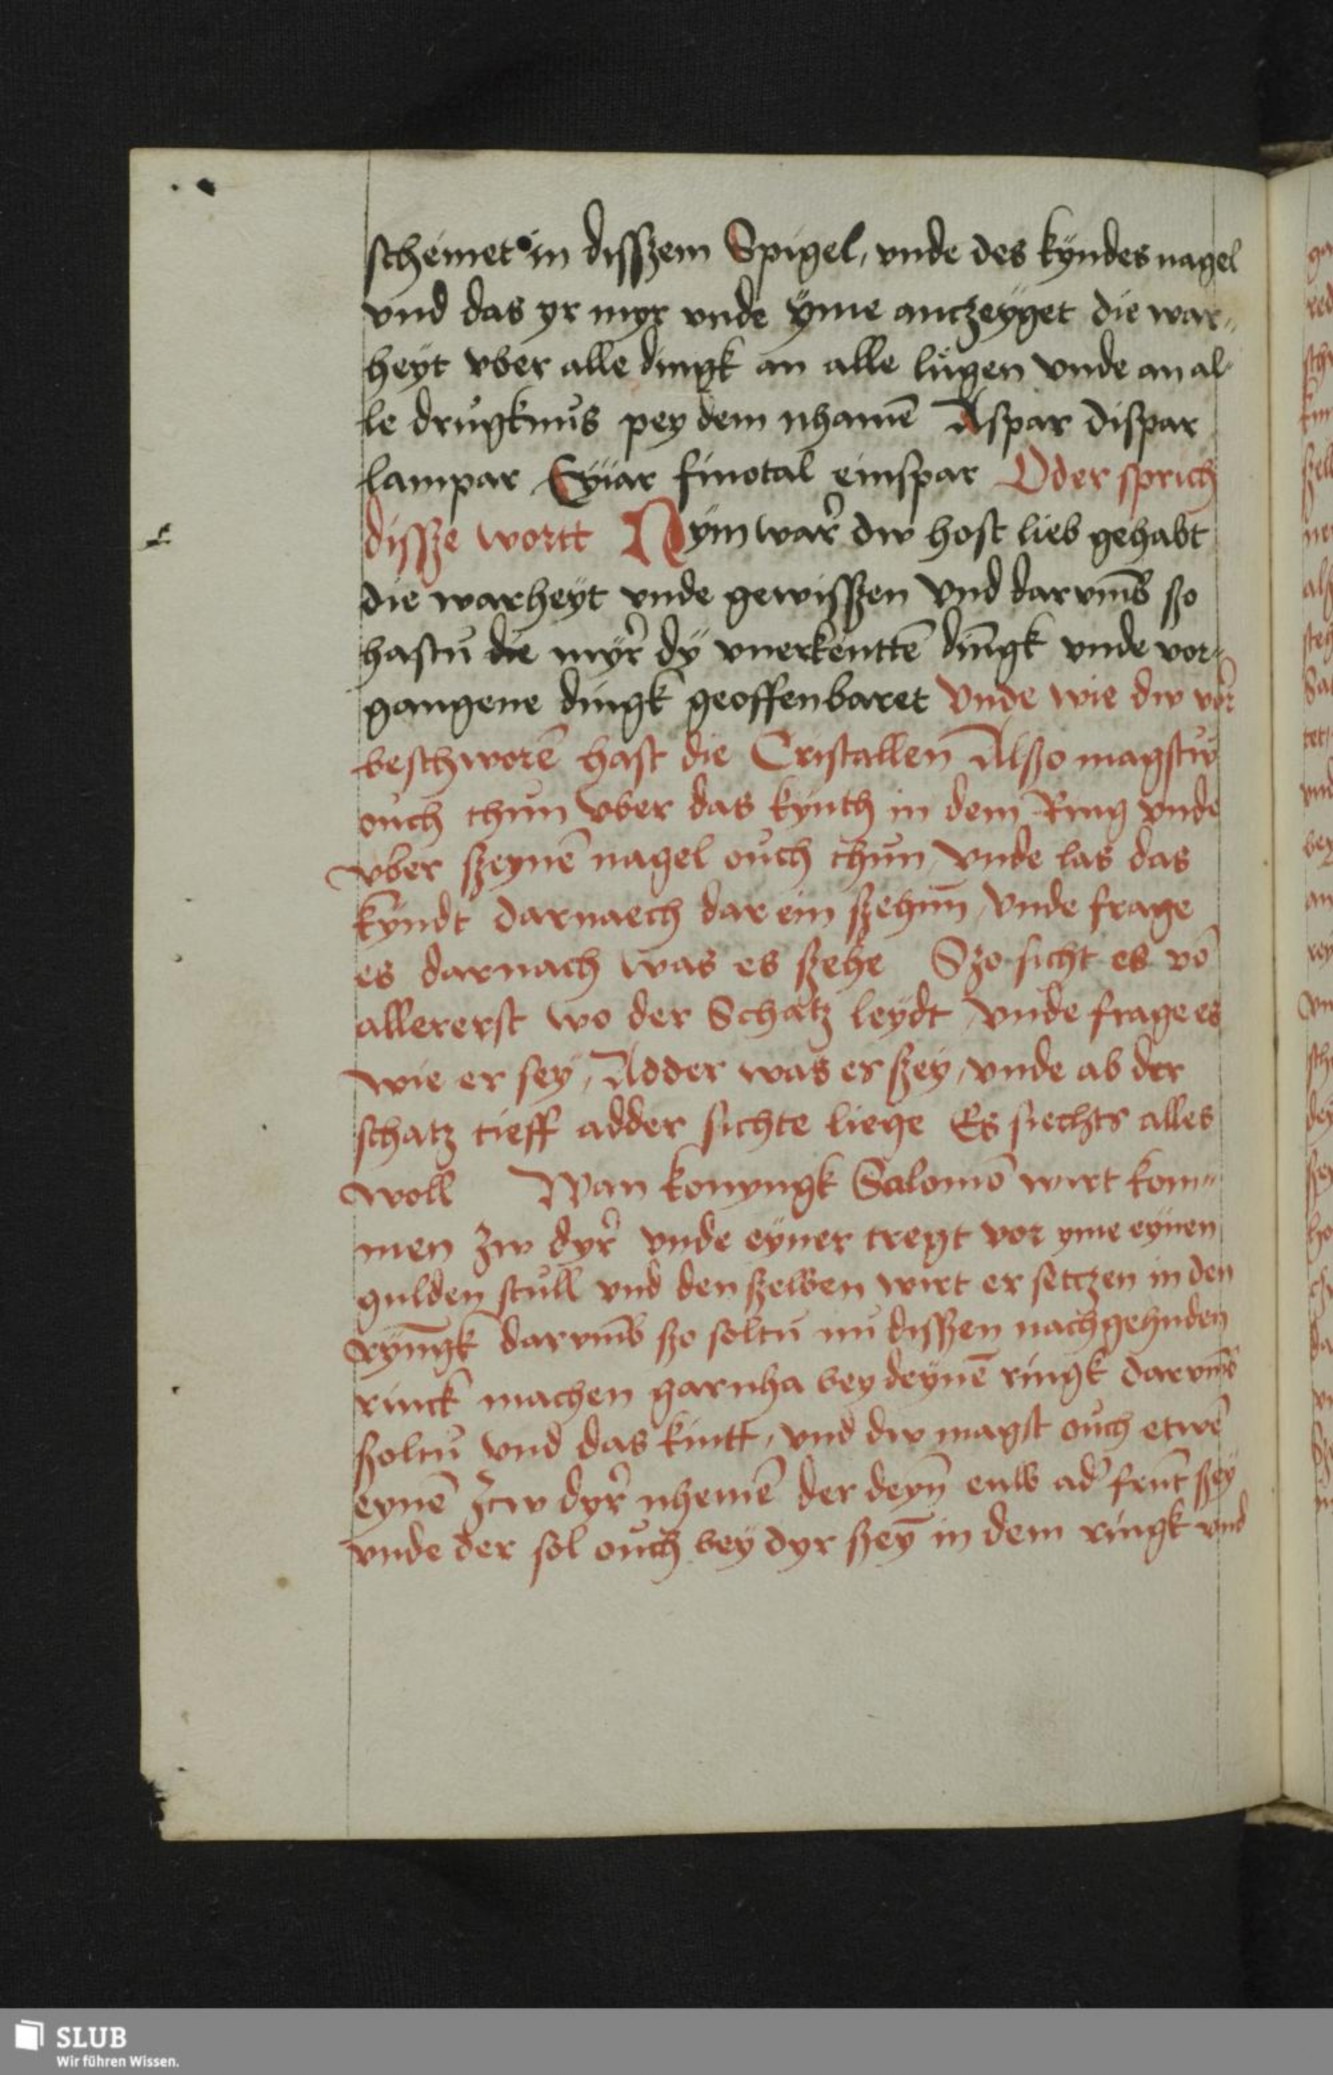 scheinet in disszem Spigel, vnde des kyndes nagel
vnd das yr myr vnde ÿme anczeyget die war„
heyt vber alle dingk an alle lůgen vnde an al
le drůgknůs pey dem nhamē Aspar dispar
lampar Eyiar finotal einspar Oder sprich
dissze wortt Nÿm war dw host lieb gehabt
die warheyt vnde gewisszen Vnd darvmb szo
hastů die myr dÿ vnerkēnttē dingk vnde vor„
gangene dingk geoffenbaret Vnde wie dw vor
beschworē hast die Cristallen Alszo magstw
oůch thun vber das kynth in dem Ring vnde
vber szeynē nagel oůch thun, vnde las das
kyndt darnaech dar ein szehnn, vnde frage
es darnach was es szehe Szo sicht es vō
allererst wo der Schatz leydt, vnde frage es
wie er sey, Adder was er szey, vnde ab der
schatz tieff adder sichte liege Es siechts alles
woll Wan konyngk Salomō wirt kom„
men zw dyr vnde eyner tregt vor yme eynen
gulden stůll vnd den szelben wirt er setczen in den
ryngk darvmb szo soltu nů disszen nachgehnden
rinck machen garnha bey deynē ringk darvmb
szoltů vnd das kintt, vnd dw magst oůch etwē
eynē zcw dyr nhemē der deyn enw ad frūt szey
vnde der sol oůch bey dyr szeȳ in dem ringk vnd
SLUB
Wir führen Wissen.